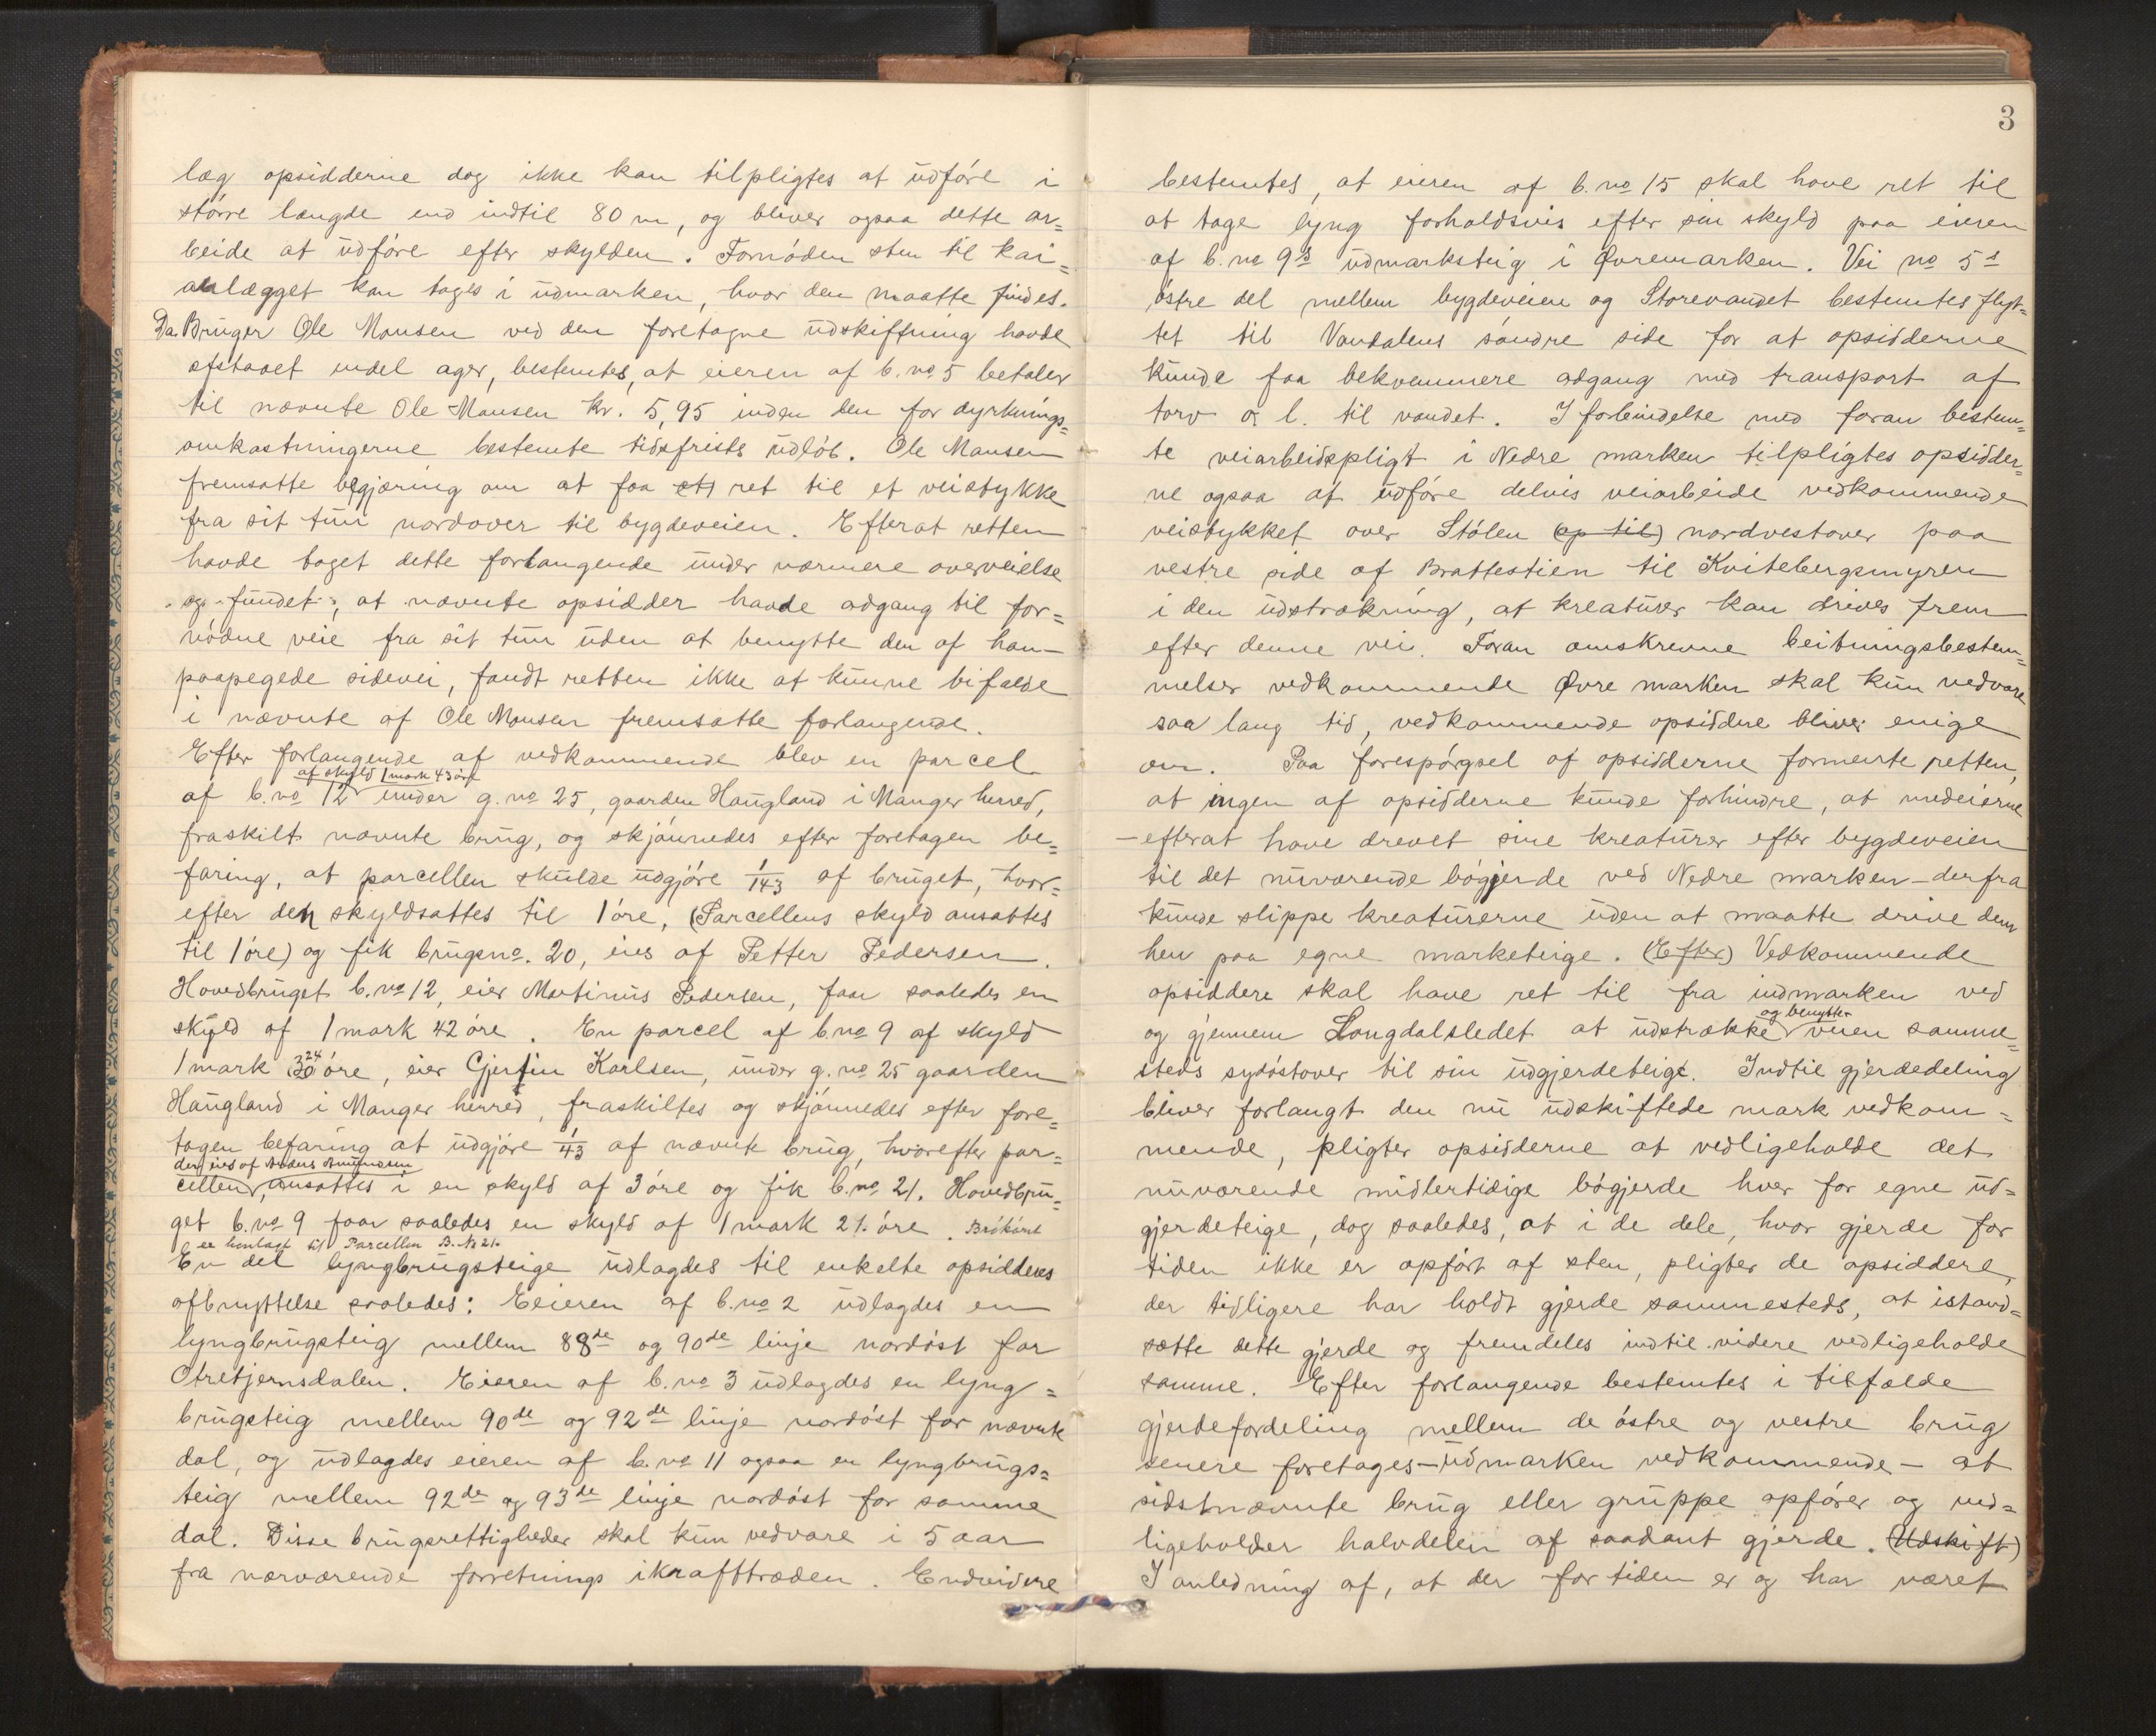 læg opsidderne dog ikke kan tilpligtes at udføre i
større længde end indtil 80 m, og bliver ogsaa dette ar=
beide at udføre efter skylden. Fornøden sten til kai=
anlægget kan tages i udmarken, hvor den maatte findes.
Da Bruger Ole Monsen ved den foretagne udskiftning havde
afstaaet endel ager, bestemtes, at eieren af b.no 5 betaler
til nævnte Ole Monsen kr. 5,95 inden den for dyrknings=
omkastningerne bestemte tidsfrists udløb. Ole Monsen
fremsatte begjæring om at faa et) ret til et veistykke
fra sit tun nordover til bygdeveien. Efterat retten
havde taget dette forlangende under nærmere overveielse
og fundet, at nævnte opsidder havde adgang til for=
nødne veie fra sit tun uden at benytte den af ham
paapegede sidevei, fandt retten ikke at kunne bifalde
i nævnte af Ole Monsen fremsatte forlangende.
Efter forlangende af vedkommende blev en parcel
af skyld 1 mark 43 øre
af b.no 12 under g.no 25, gaarden Haugland i Manger herred,
fraskilt nævnte brug, og skjønnedes efter foretagen be=
faring, at parcellen skulde udgjøre 1/143 af bruget, hvor=
efter den skyldsattes til 1 øre, (Parcellens skyld ansattes
til 1 øre) og fik brugsno. 20, eies af Petter Pedersen.
Hovedbruget b.no 12, eier Martinus Pedersen, faar saaledes en
skyld af 1 mark 42 øre. En parcel af b.no 9 af skyld
1 mark 24 øre, eier Gjertin Karlsen, under g.no 25 gaarden
Haugland i Manger herred, fraskiltes og skjønnedes efter fore=
tagen befaring at udgjøre 1/43 af nævnte brug, hvorefter par=
den eies af Anders Amundsen
cellen, ansattes i en skyld af 3 øre og fik b.no 21. Hovedbru=
get b.no 9 faar saaledes en skyld af 1 mark 21 øre. Brøkøre
er henlagt til Parcellen B.No 21.
En del lyngbrugsteige udlagdes til enkelte opsidderes
afbenyttelse saaledes: Eieren af b.no 2 udlagdes en
lyngbrugsteig mellem 88de og 90de linje nordøst for
Otretjernsdalen. Eieren af b.no 3 udlagdes en lyng=
brugsteig mellem 90de og 92de linje nordøst for nævnte
dal, og udlagdes eieren af b.no 11 ogsaa en lyngbrugs=
teig mellem 92de og 93de linje nordøst for samme
dal. Disse brugsrettigheder skal kun vedvare i 5 aar
fra nærværende forretnings ikrafttræden. Endvidere
3
bestemtes, at eieren af b.no 15 skal have ret til
at tage lyng forholdsvis efter sin skyld paa eieren
af b.no 9s udmarksteig i Øvremarken. Vei no 5s
østre del mellem bygdeveien og Storevandet bestemtes flyt=
tet til Vandalens søndre side for at opsidderne
kunde faa bekvemmere adgang med transport af
torv o. l. til vandet. I forbindelse med foran bestem=
te veiarbeidspligt i Nedre marken tilpligtes opsidder=
ne ogsaa at udføre delvis veiarbeide vedkommende
veistykket over Stølen (op til) nordvestover paa
vestre side af Brattestien til Kvitebergsmyren
i den udstrækning, at kreaturer kan drives frem
efter denne vei. Foran omskrevne beitningsbestem=
melser vedkommende Øvre marken skal kun vedvare
saa lang tid, vedkommende opsiddere bliver enige
om. Paa forespørgsel af opsidderne formente retten,
at ingen af opsidderne kunde forhindre, at medeierne
- efterat have drevet sine kreaturer efter bygdeveien
til det nuværende bøgjerde ved Nedre marken - derfra
kunde slippe kreaturerne uden at maatte drive dem
hen paa egne marketeige. (Efter) Vedkommende
opsiddere skal have ret til fra indmarken ved
og benytte
og gjennem Langdalsledet at udstrække veien samme=
steds sydøstover til sin udgjerdeteige. Indtil gjerdedeling
bliver forlangt den nu udskiftede mark vedkom=
mende, pligter opsidderne at vedligeholde det
nuværende midlertidige bøgjerde hver for egne ud=
gjerdeteige, dog saaledes, at i de dele, hvor gjerde for
tiden ikke er opført af sten, pligter de opsiddere,
der tidligere har holdt gjerde sammesteds, at istand=
sætte dette gjerde og fremdeles indtil videre vedligeholde
samme. Efter forlangende bestemtes i tilfælde
gjerdefordeling mellem de østre og vestre brug
senere foretages - udmarken vedkommende - at
sidstnævnte brug eller gruppe opfører og ved=
ligeholder halvdelen af saadant gjerde. (Udskift)
I anledning af, at der for tiden er og har været